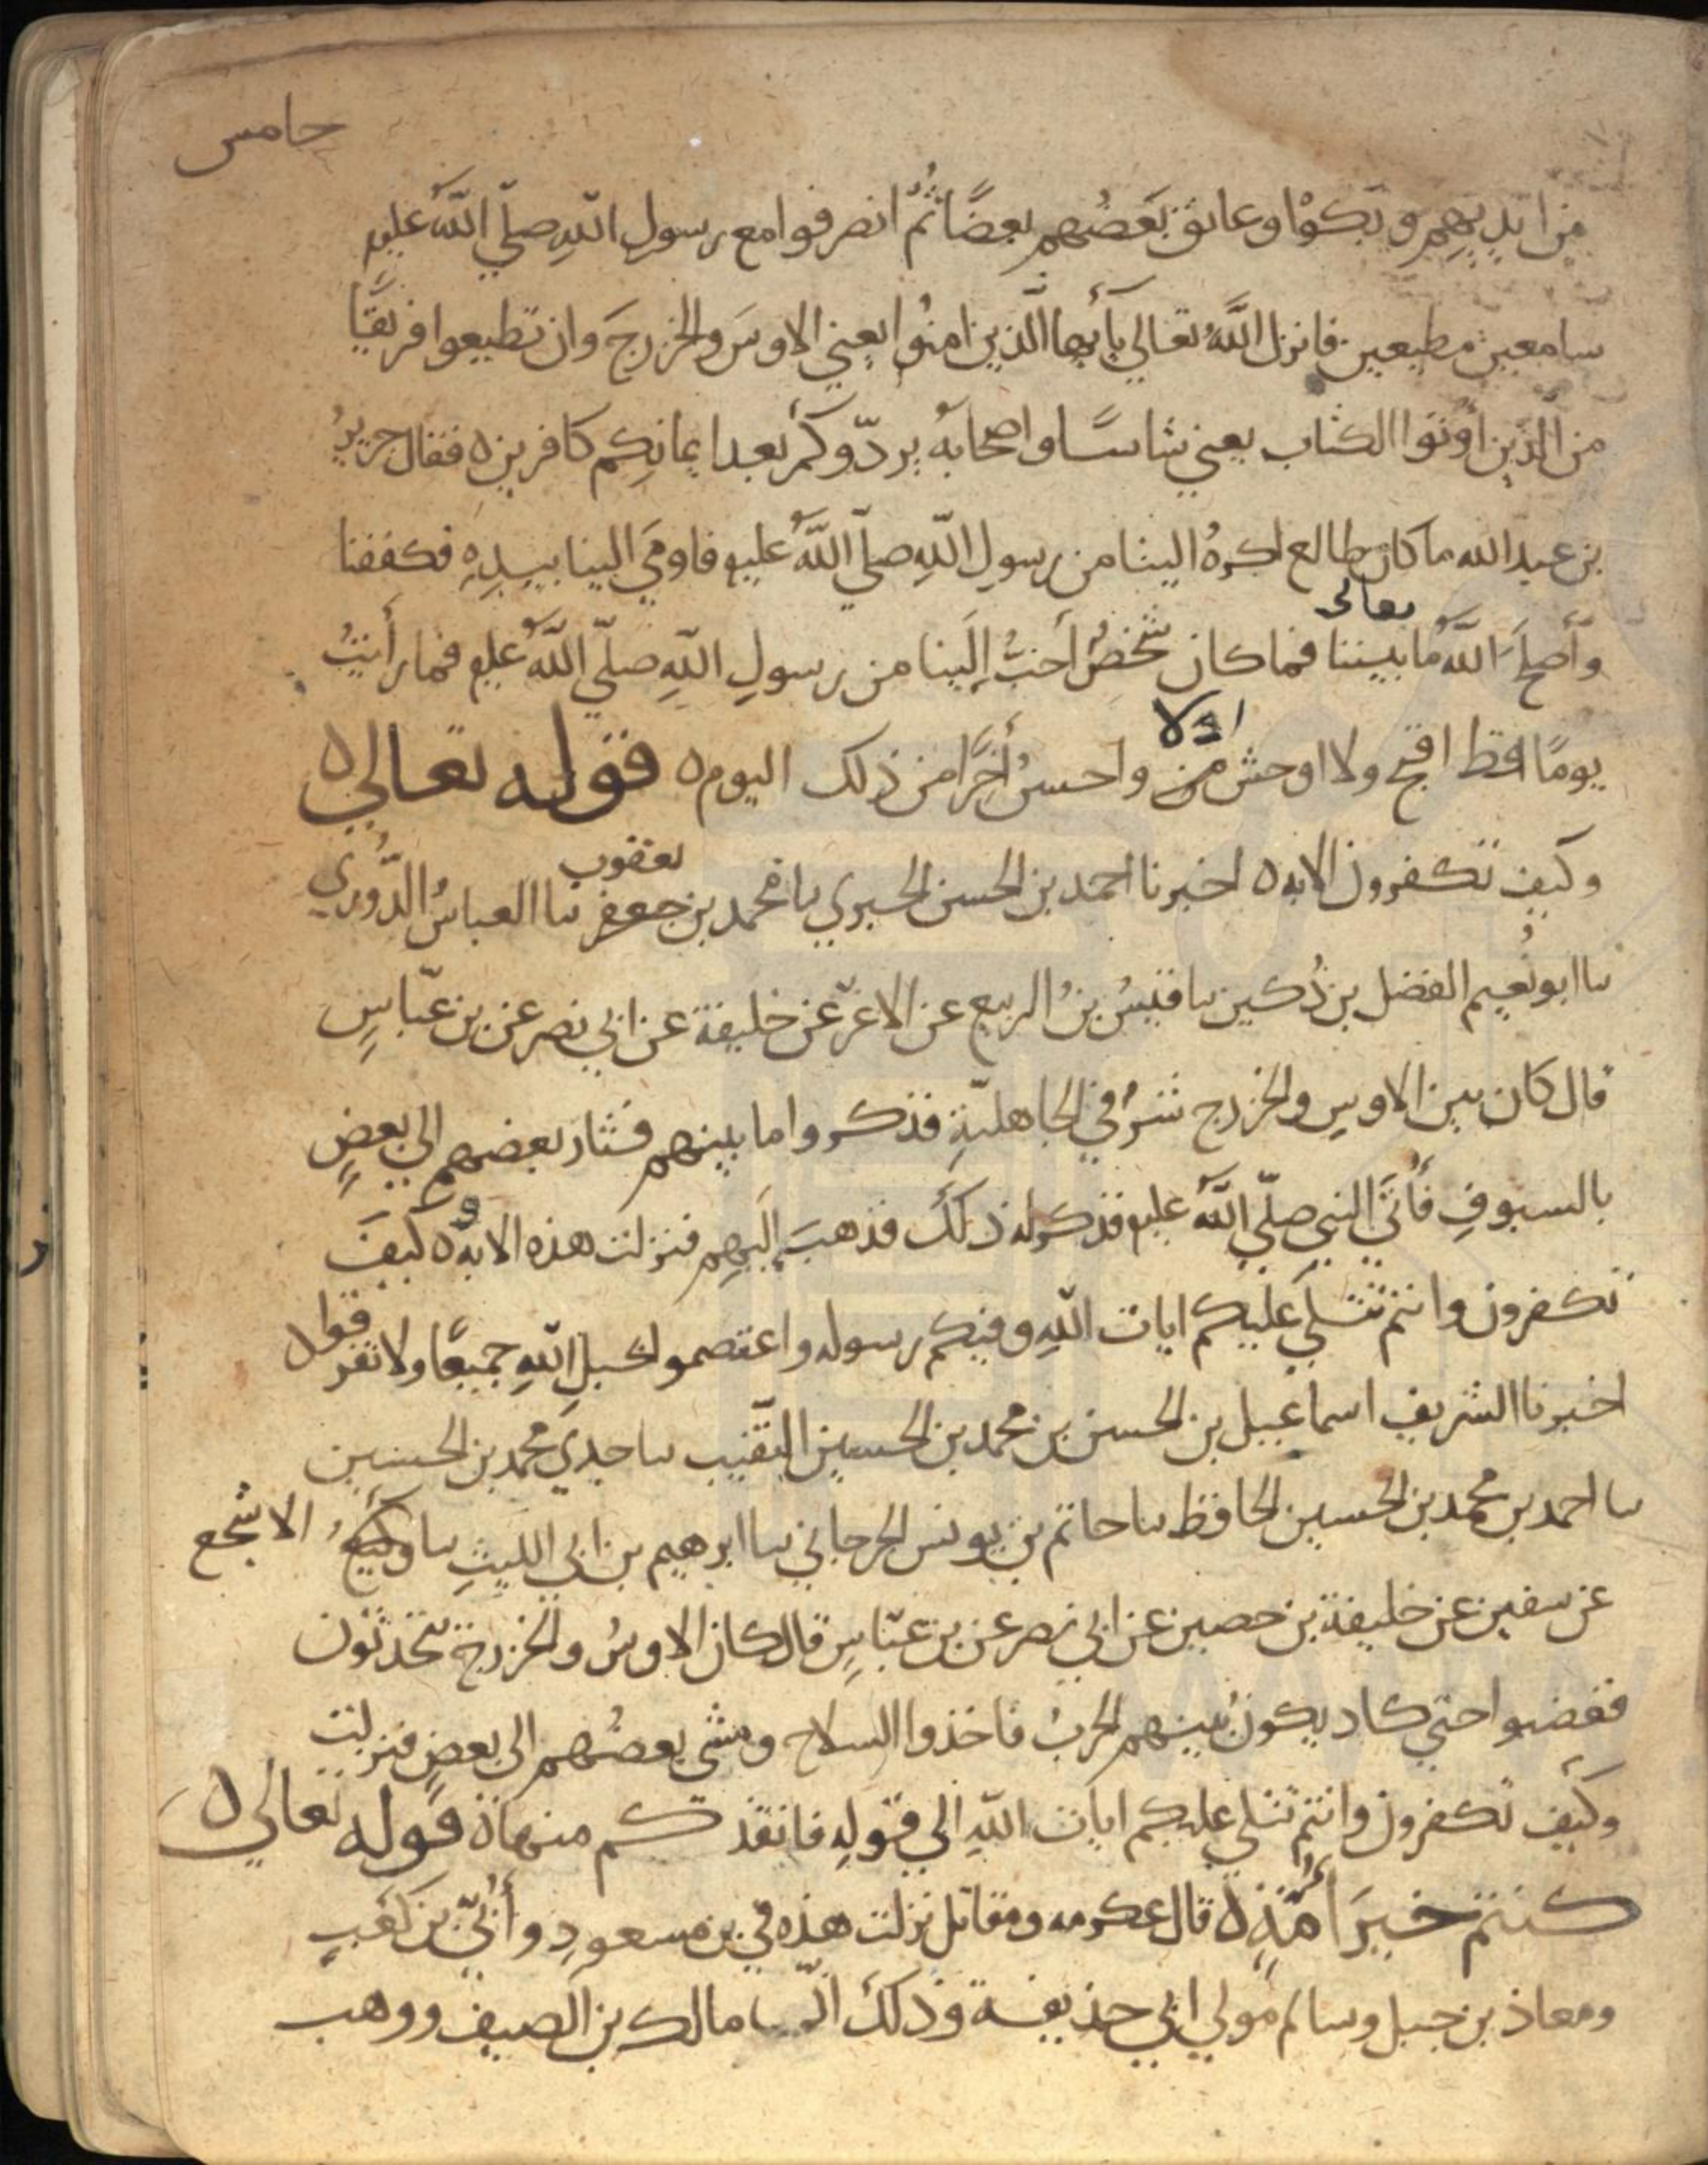 خامس
من ايديهم وبكوْا وعانق بَعضُهم بعضًا ثُمّ انصرفوا مع رسول اللهِ صلّي اللهُ عليه
سامعين مطيعين فانزل اللهُ تعالي يأيها الذين امنُوا يعني الاوسَ والخزرجَ وان تطيعوا فريقًا
من الّذين اُوتوا الكتاب يعني شاسًا واصحابهُ يردّوكم بعد ايمانِكم كافرين ه فقال جريرُ
بن عبد الله ما كان طالع اكرهُ الينا من رسولِ اللهِ صلّي اللهُ عليه فاومَي الينا بيدِهِ فكففنا
تعالى
وأصلحَ اللهُ ما بيننا فما كان شخصٌ أحبُّ إلَينا من رسولِ اللهِ صلّي اللهُ عليه فما رأيتُ
اولا
يومًا قط اقبح ولا اوحش من واحسنُ اٰخرًا من ذلك اليوم ه قوله تعالي ه
وكيف تكفرون الايه ه اخبرنا احمد بن الحسن الحيري نا محمد بن جعفر نا العباسُ الدُّوري
يعقوب
نا ابو نُعيم الفضل بن دُكين نا قيسُ بنُ الربيع عن الاغرّ عن خليفة عن ابي نصر عن بن عبّاسٍ
قال كان بين الاوسِ والخزرج شرٌ في الجاهليّةِ فذكروا ما بينهم فثار بعضهم الي بعضٍ
بالسيوفِ فأتَي النبي صلّي اللهُ عليه فذكر له ذلكَ فذهبَ إلَيهِم فنزلت هذه الايه ه وكيفَ
تكفرون وانتم تتلَي عليكم ايات اللهِ وفيكم رسوله واعتصموا بحبل اللهِ جميعًا ولا تفرقوا ه
اخبرنا الشريف اسماعيل بن الحسن بن محمد بن الحسين النقيب نا جدي محمد بن الحسين
نا احمد بن محمد بن الحسين الحافظ نا حاتم بن يونس الجرجاني نا ابرهيم بن ابي الليثِ نا وكيعُ الاشجع
عن سفين عن خليفة بن حصين عن ابي نصر عن بن عبّاسٍ قال كان الاوسُ والخزرج يتحدثون
فغضبوا حتي كاد يكونُ بينهم الحربُ فاخذوا السلاح ومشى بعضُهم الى بعضٍ فنزلت
وكيف تكفرون وانتم تتلي عليكم ايات اللهِ الي قولهِ فانقذكم منها ه قوله تعالي ه
كنتم خيرَ أمّةٍ ه قال عكرمه ومقاتل نزلت هذه في بن مسعودٍ وأُبَيّ بن كعبٍ
ومعاذ بن جبل وسالم مولي ابي حذيفة وذلكَ انّ مالك بن الصيف ووهب